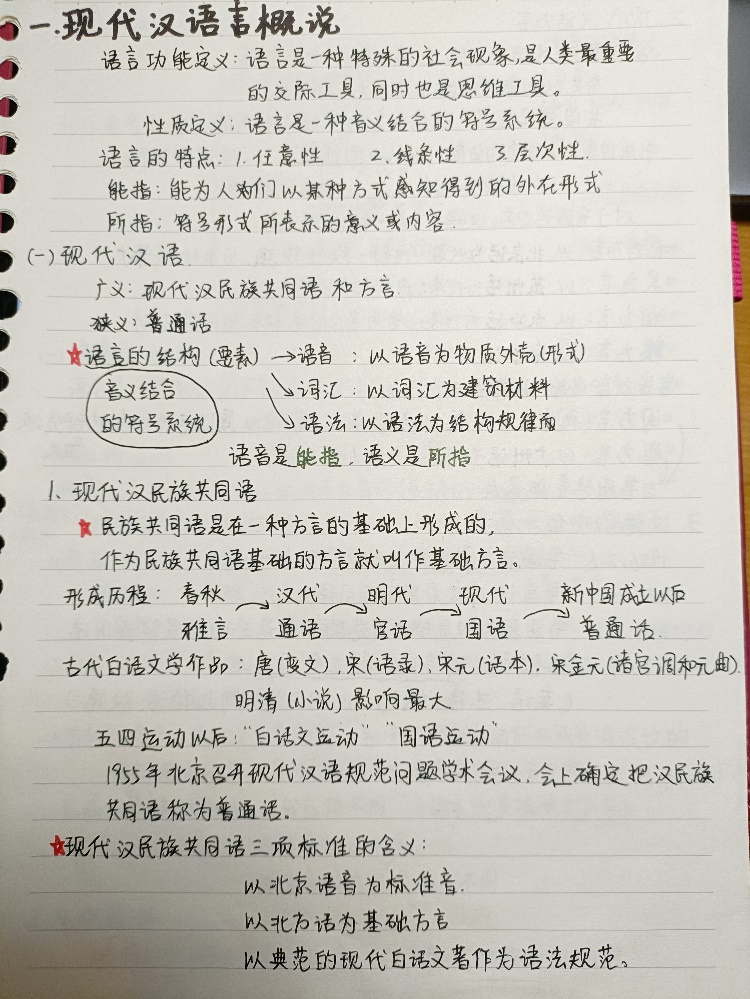 一.现代汉语言概说
语言功能定义:语言是一种特殊的社会现象,是人类最重要
的交际工具,同时也是思维工具。
性质定义:语言是一种音义结合的符号系统。
语言的特点:1.任意性 2.线条性 3.层次性.
能指:能为人们以某种方式感知得到的外在形式
所指:符号形式所表示的意义或内容.
(一)现代汉语.
广义:现代汉民族共同语和方言.
狭义:普通话
★语言的结构(要素)→语音:以语音为物质外壳(形式)
音义结合 ↘词汇:以词汇为建筑材料
的符号系统 ↘语法:以语法为结构规律而
语音是能指,语义是所指
1.现代汉民族共同语
★民族共同语是在一种方言的基础上形成的,
作为民族共同语基础的方言就叫作基础方言。
形成历程:春秋→汉代→明代→现代→新中国成立以后
雅言 通语 官话 国语 普通话.
古代白话文学作品:唐(变文),宋(语录),宋元(话本).宋金元(诸宫调和元曲).
明清(小说)影响最大
五四运动以后:"白话文运动" "国语运动"
1955年北京召开现代汉语规范问题学术会议,会上确定把汉民族
共同语称为普通话。
★现代汉民族共同语三项标准的含义:
以北京语音为标准音.
以北方话为基础方言
以典范的现代白话文著作为语法规范。